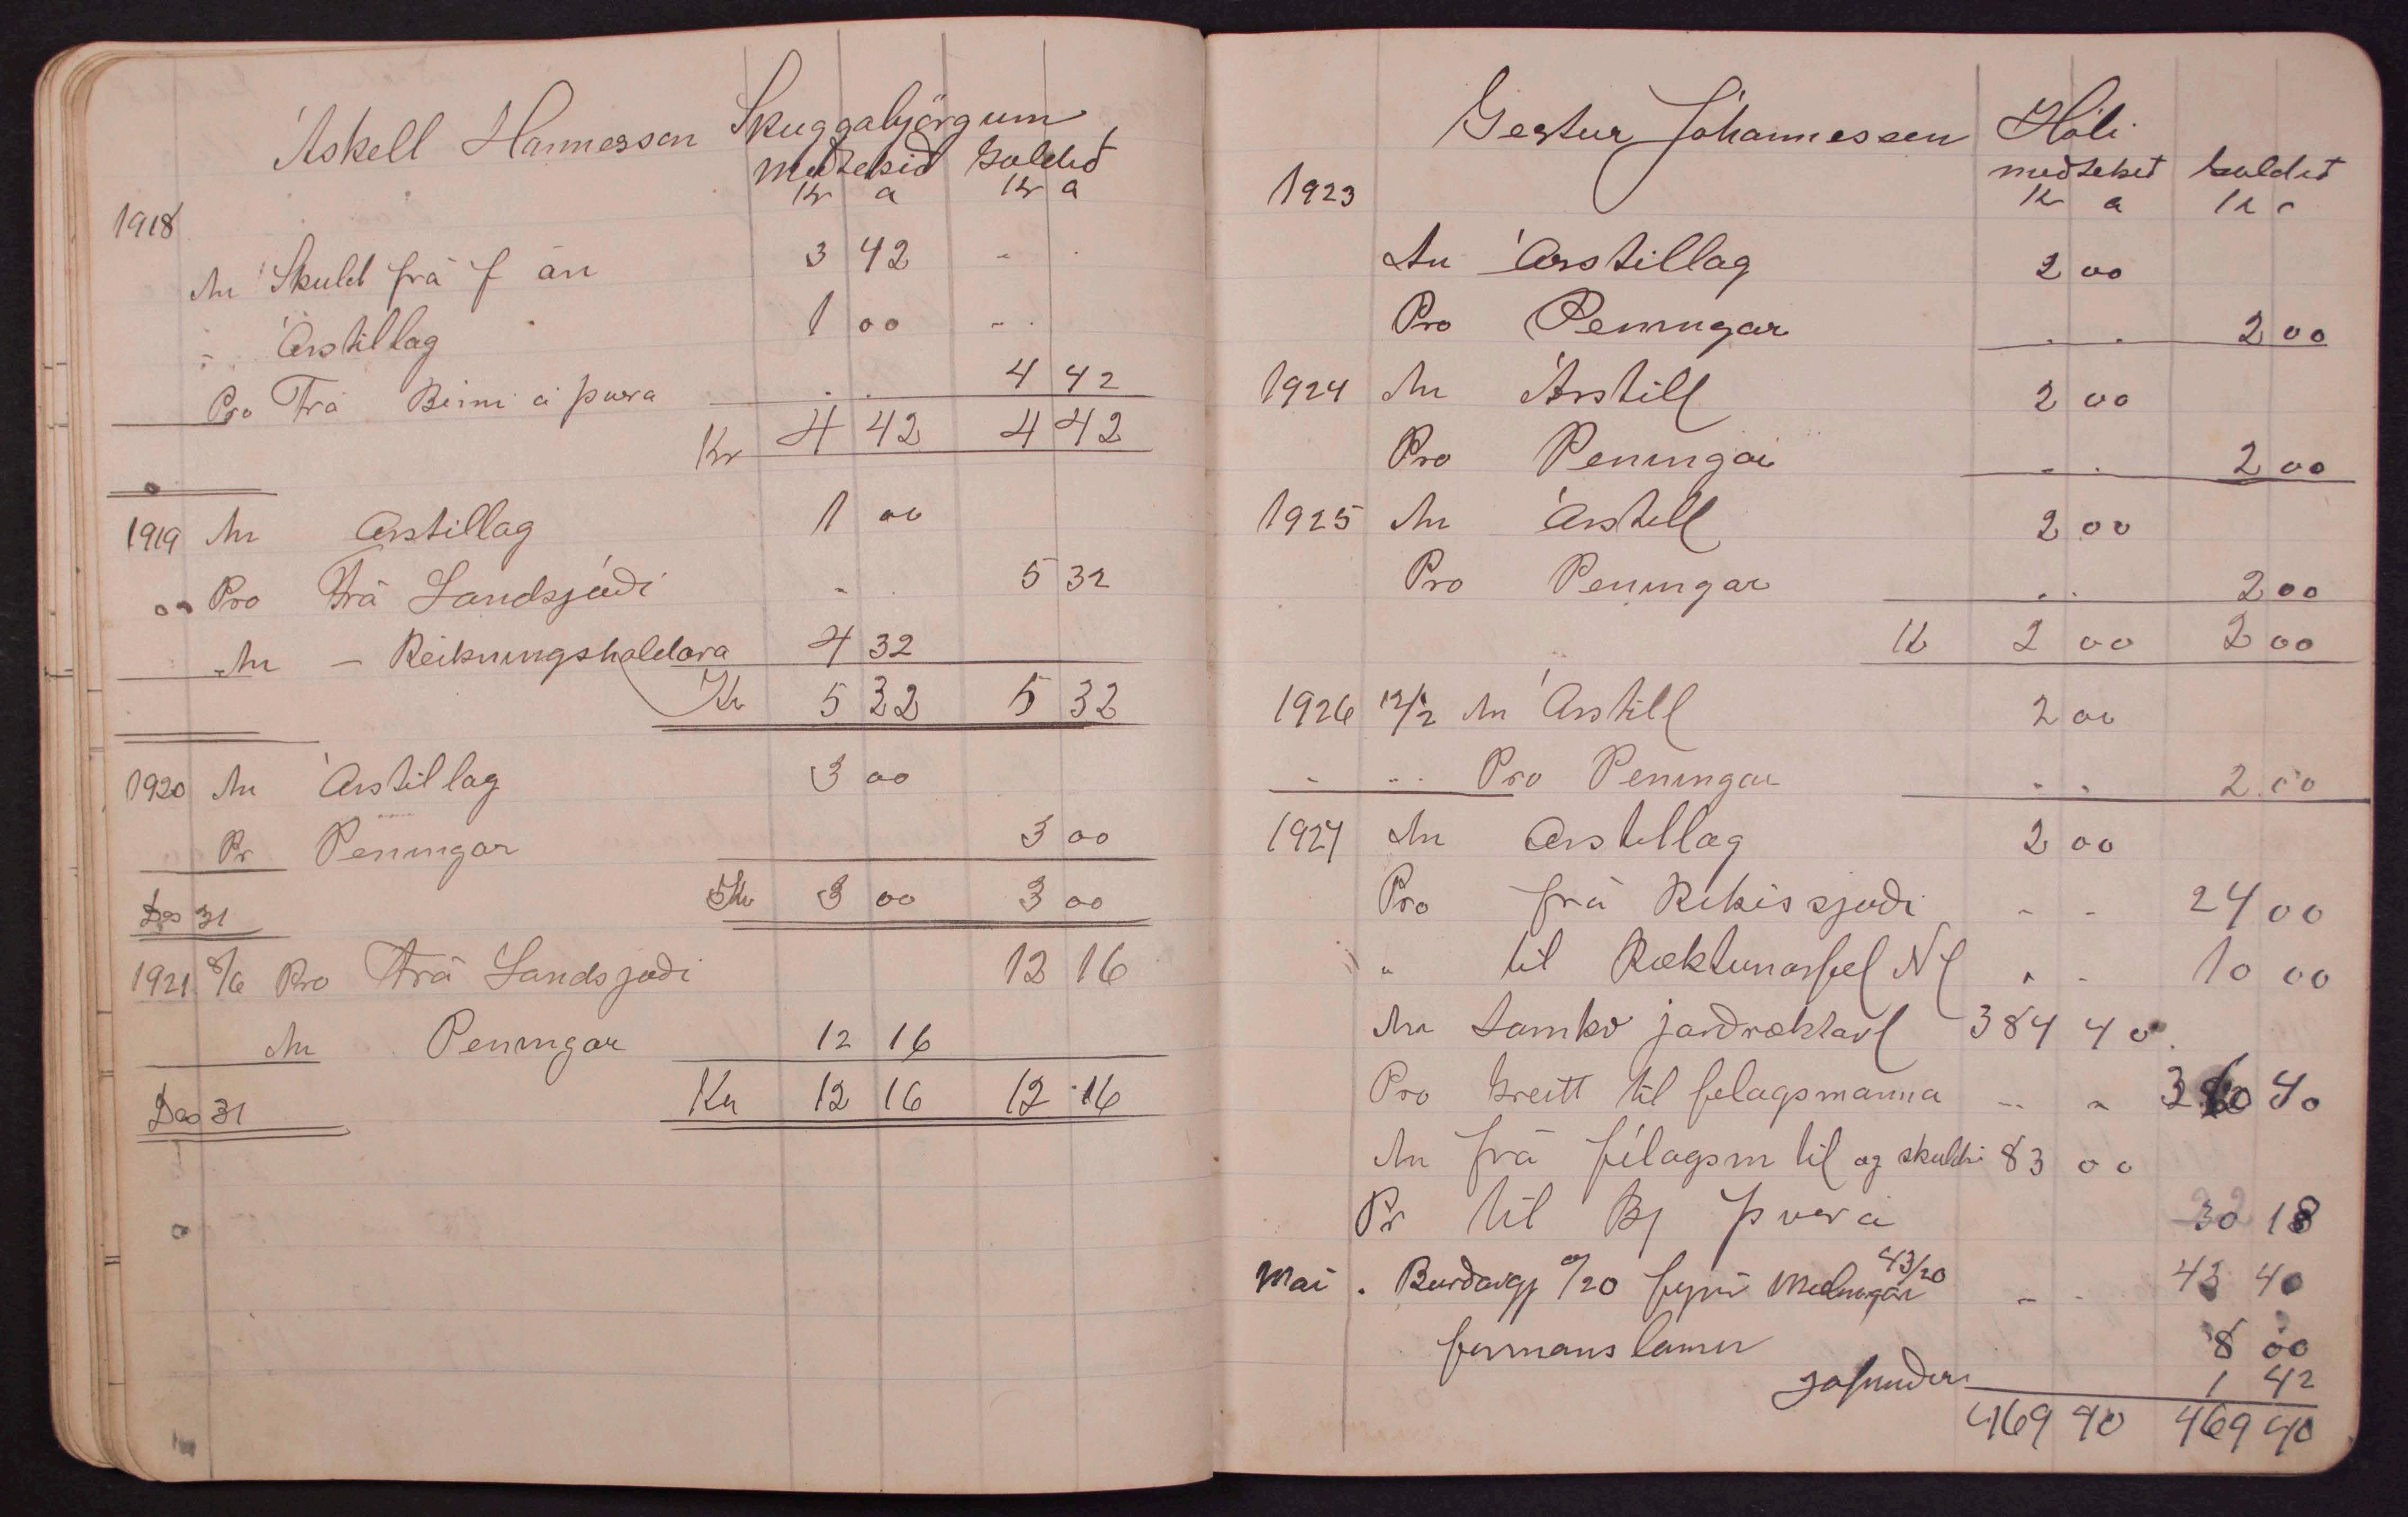 Áskell Hannesson Skuggabjörgum
meðtekið Goldið
Kr a Kr a
1918
An Skuld frá f ári 3 42 - -
" Árstillag 1 00 - -
Pro Frá Birni á þverá - - 4 42
Kr 4 42 4 42
1919 An Árstillag 1 00
Pro Frá Landsjóði - 5 32
An - Reikningshaldara 4 32
Kr 5 32 5 32
1920 An Árstillag 3 00
Pr Peningar 3 00
Des 31 Kr 3 00 3 00
1921 8/6 Pro Frá Landsjóði 12 16
An Peningar 12 16
Des 31 Kr 12 16 12 16
Gestur Jóhannesson Hóli
meðtekið Goldið
1923 Kr a Kr a
An Árstillag 2 00
Pro Peningar - - 2 00
1924 An Árstill 2 00
Pro Peningar - - 2 00
1925 An Árstill 2 00
Pro Peningar - - 2 00
K 2 00 2 00
1926 12/2 An Árstill 2 00
" " Pro Peningar - - 2 00
1927 An Árstillag 2 00
Pro frá Rikissjoði - - 24 00
" til Ræktunarfel Nl - - 10 00
An Samkv jarðræktarl 384 40
Pro Greitt til felagsmanna - - 40
An frá félagsm til og skuldir 83 00
Pr til Bj þverá 18
Mai . Burðargj /20 fyrir 43/20 - - 43 40
8 00
Jofnuður 1 42
469 40 469 40